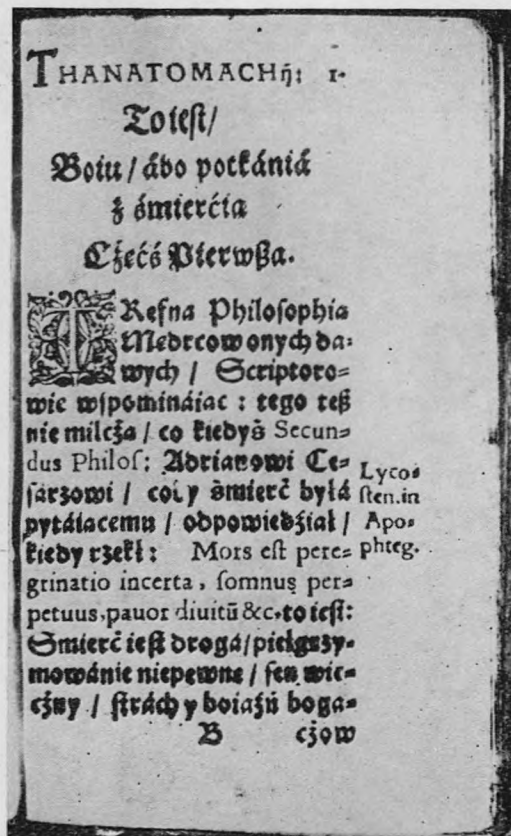 THANATOMACHij: 1.
To iest/
Boiu / ábo potkániá
z śmierćia
Cżęść Pierwßa.
TRefna Philosophia
Mędrcow onych da-
wych / Scriptoro-
wie wspomináiac : tego teß
nie milcżą / co kiedyś Secun-
dus Philos: Adrianowi Ce-
sárzowi / coby śmierć byłá
pytáiacemu / odpowiedźiał /
kiedy rzekł : Mors est pere-
grinatio incerta, somnus per-
petuus, pavor divitū &c, to iest:
Smierć iest drogá/pielgrzy-
mowánie niepewne / sen wie-
cżny / strách y boiaźń bogá-
B cżow
Lycos-
ten. in
Apo-
phteg.